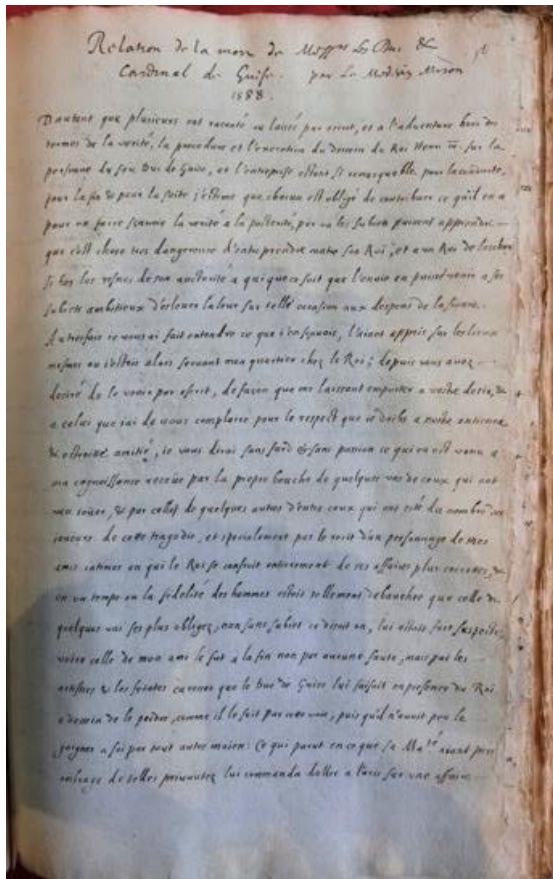 Relation de la mort de Messrs Les Duc &
Cardinal de Guise. par Le Medecin Miron
1588.
D'autant que plusieurs ont raconté ou laissé par escrit, et a l'adventure hors des
termes de la verité, la procedure et l'execution du dessein du Roi Henri III. sur la
personne du feu Duc de Guise, et l'entreprise estant si remarquable pour la conduite,
pour la fin & pour la suite j'estime que chacun est obligé de contribuer ce qu'il en a
pour en faire sçavoir la verité a la posterité, par ou les subiets puissent apprendre
que c'est chose tres dangereuse d'entreprendre contre son Roi, et a un Roi de
si bas les resnes de son auctorité a qui que ce soit que l'envie en puisse venir a ses
subiets ambitieux d'eslever la leur sur telle occasion aux despens de la sienne.
Autresfois ie vous ai fait entendre ce que i'en sçavois, l'aiant appris sur les lieux
mesmes ou i'estois alors servant mon quartier chez le Roi; depuis vous avez
desiré de le venir par escrit, de façon que me laissant emporter a vostre desir, &
a celui que iai de vous complaire pour le respect que ie dois a nostre ancienne
& estroite amitié, ie vous dirai sans fard & sans passion ce qui en est venu a
ma cognoissance receüe par la propre bouche de quelques uns de ceux qui ont
veu, & par celles de quelques autres d'entre ceux qui ont esté du nombre des
ioueurs de cette tragedie, et specialement par le recit d'un personnage de mes
amis intimes en qui le Roi se confioit entierement de ses affaires plus secrettes, &
en un temps ou la fidelité des hommes estoit tellement debauchee que celle de
quelques uns ses plus obligez, non sans subiet ce disoit on, lui estoit fort suspecte,
voire celle de mon ami le fut a la fin non par aucune faute, mais par les
artifices & les feintes caresses que le Duc de Guise lui faisoit en presence du Roi
a dessein de le perdre, comme il le fit par cette voie, puis qu'il n'avoit peu le
gaigner a soi par tout autre moien: Ce qui parut en ce que sa Maté aiant pris
ombrage de telles privautez lui commanda d'aller a Paris sur une affaire